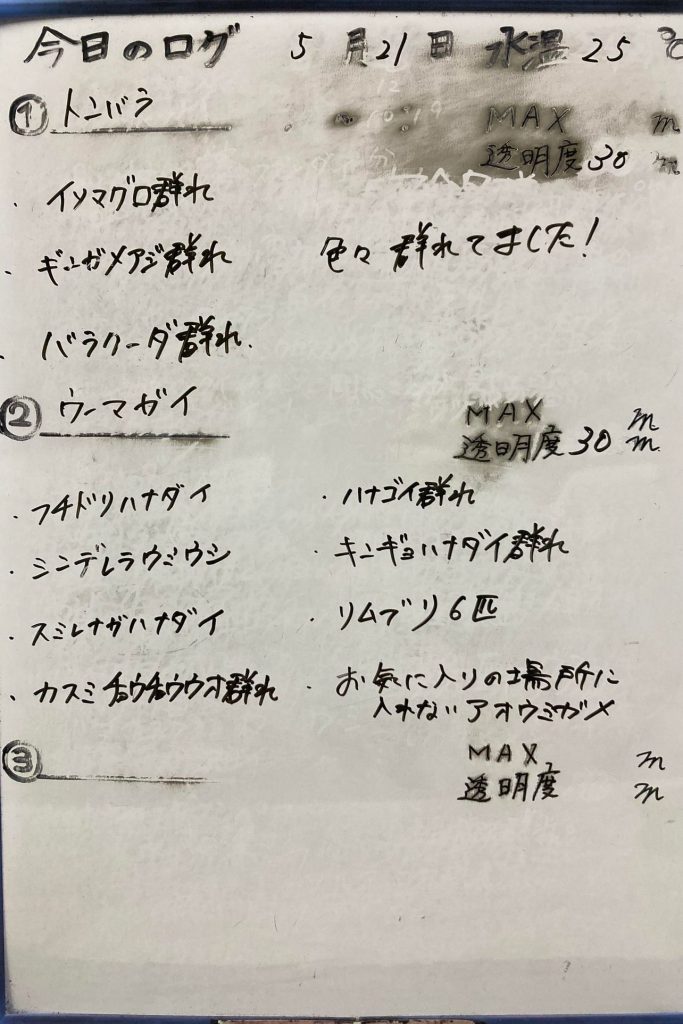 今日のログ 5月21日 水温25℃
① トンバラ MAX m
透明度30m
・イソマグロ群れ
・ギンガメアジ群れ 色々群れてました!
・バラクーダ群れ.
② ウーマガイ MAX m
透明度30m
・フチドリハナダイ ・ハナゴイ群れ
・シンデレラウミウシ ・キンギョハナダイ群れ
・スミレナガハナダイ ・リムブリ6匹
・カスミチョウチョウウオ群れ ・お気に入りの場所に
入れないアオウミガメ
③ MAX m
透明度 m